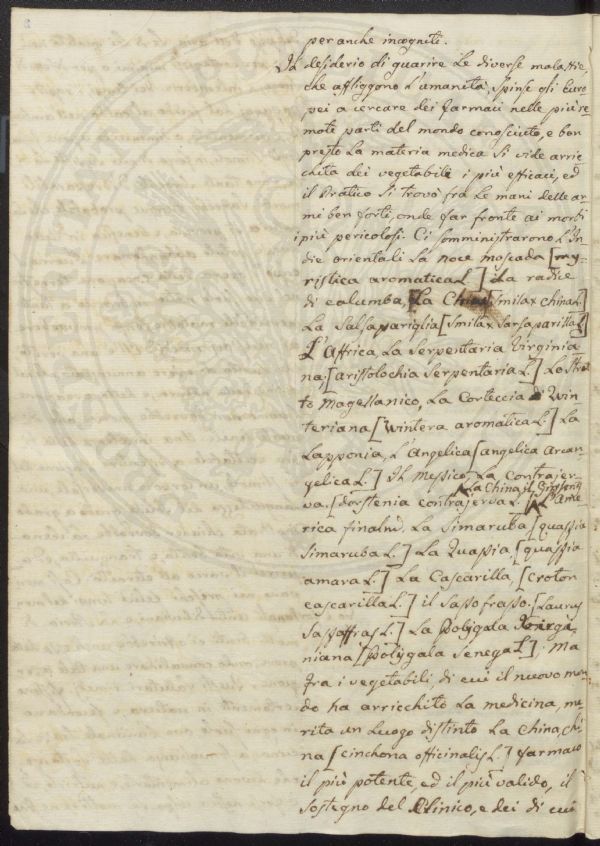 per anche incogniti.
Il desiderio di guarire le diverse malattie,
che affliggono l'umanità, spinse gli Euro
pei a cercare dei farmaci nelle più re
mote parti del mondo conosciuto, e ben
presto la materia medica si vide arric
chita dei vegetabili i più efficaci, ed
il Pratico si trovò fra le mani delle ar
mi ben forti, onde far fronte ai morbi
i più pericolosi. Ci somministrarono l'In
die orientali la noce moscada [my
ristica aromatica L.] la radice
di calumba, [La China [Smilax china L.]
La Salsapariglia [Smilax Sarsaparilla L.]
L'Affrica, La Serpentaria Virginia
na, [aristolochia Serpentaria L.] Lo Stret
to Magellanico, La Corteccia di Win
teriana [Wintera aromatica L.] La
Lapponia, L'Angelica [angelica Arcan
gelica L.] Il Messico, La Contrajer
va [dorstenia contrajerva L.] L'Ame
La China, il
rica finalm. La Simaruba [quassia
Simaruba L.] La Quassia, [quassia
amara L.] La Cascarilla, [Croton
cascarilla L.] il Sassofrasso. [Laurus
Sassaffras L.] La Polygala Virgi
niana [Polygala Senega L.]. Ma
fra i vegetabili, di cui il nuovo mon
do ha arricchito la medicina, me
rita un luogo distinto La China, Chi
na [cinchona officinalis L.] farmaco
il più potente, ed il più valido, il
sostegno del Clinico, e dei di cui